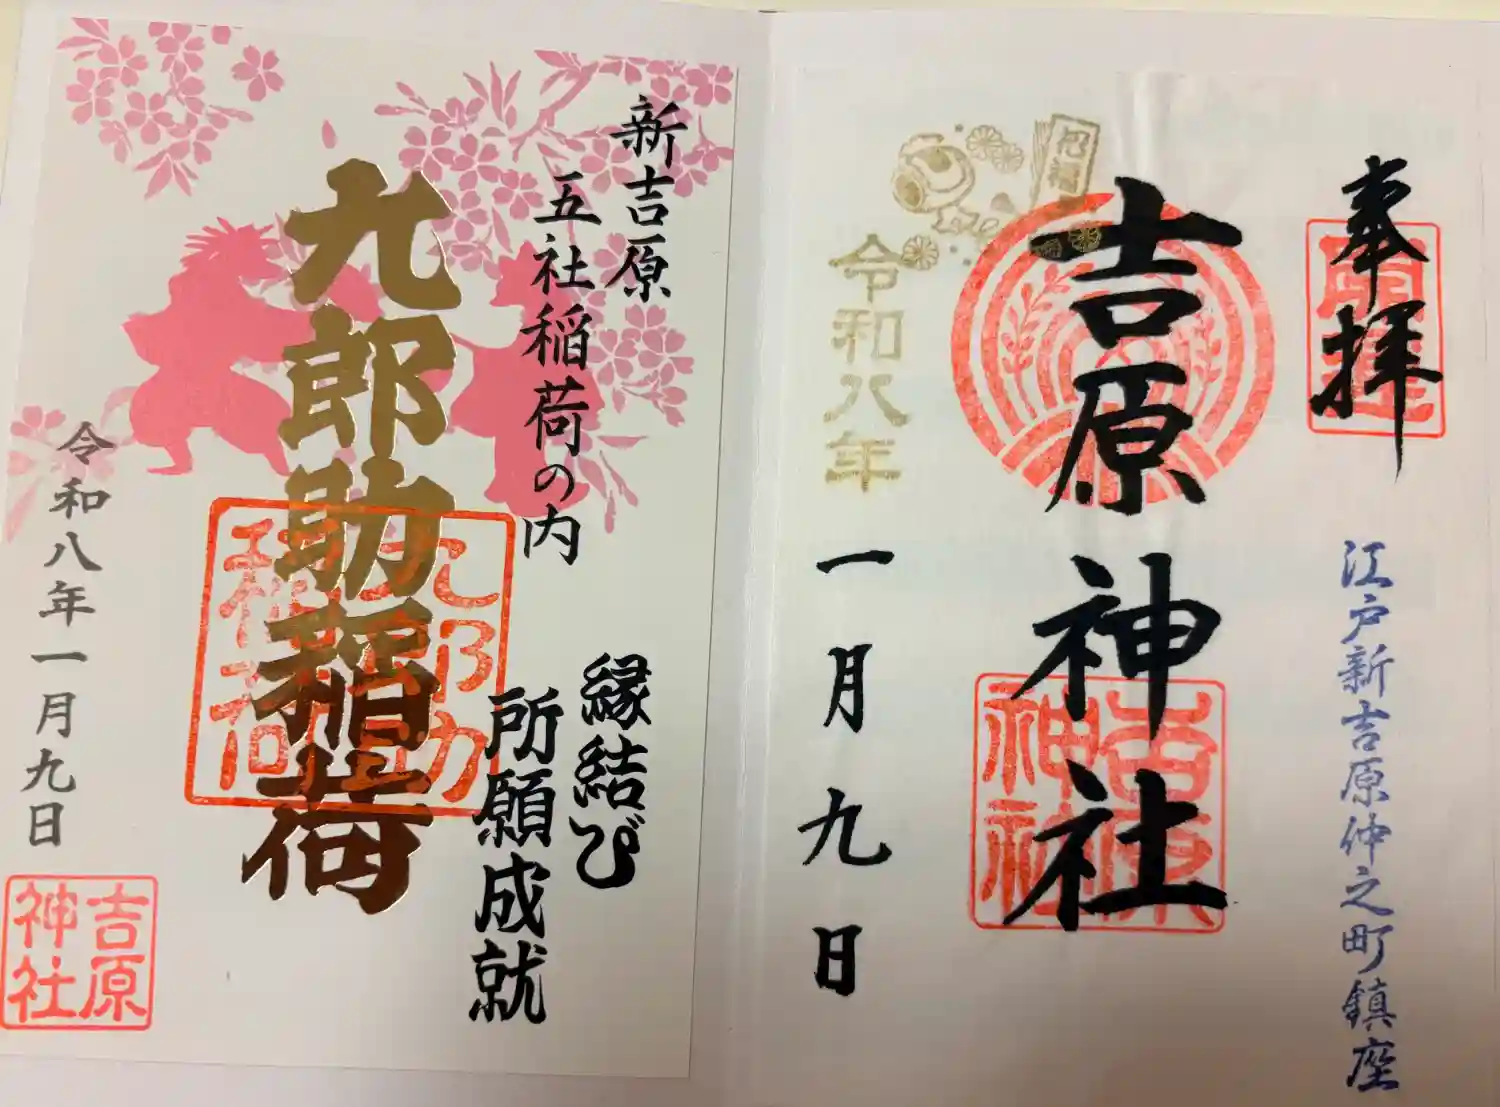 奉拝
開運
江戸新吉原仲之町鎮座
吉原神社
吉原神社
招福
令和八年
一月九日
新吉原
五社稲荷の内
縁結び
所願成就
九郎助稲荷
九郎助稲荷
令和八年一月九日
吉原神社